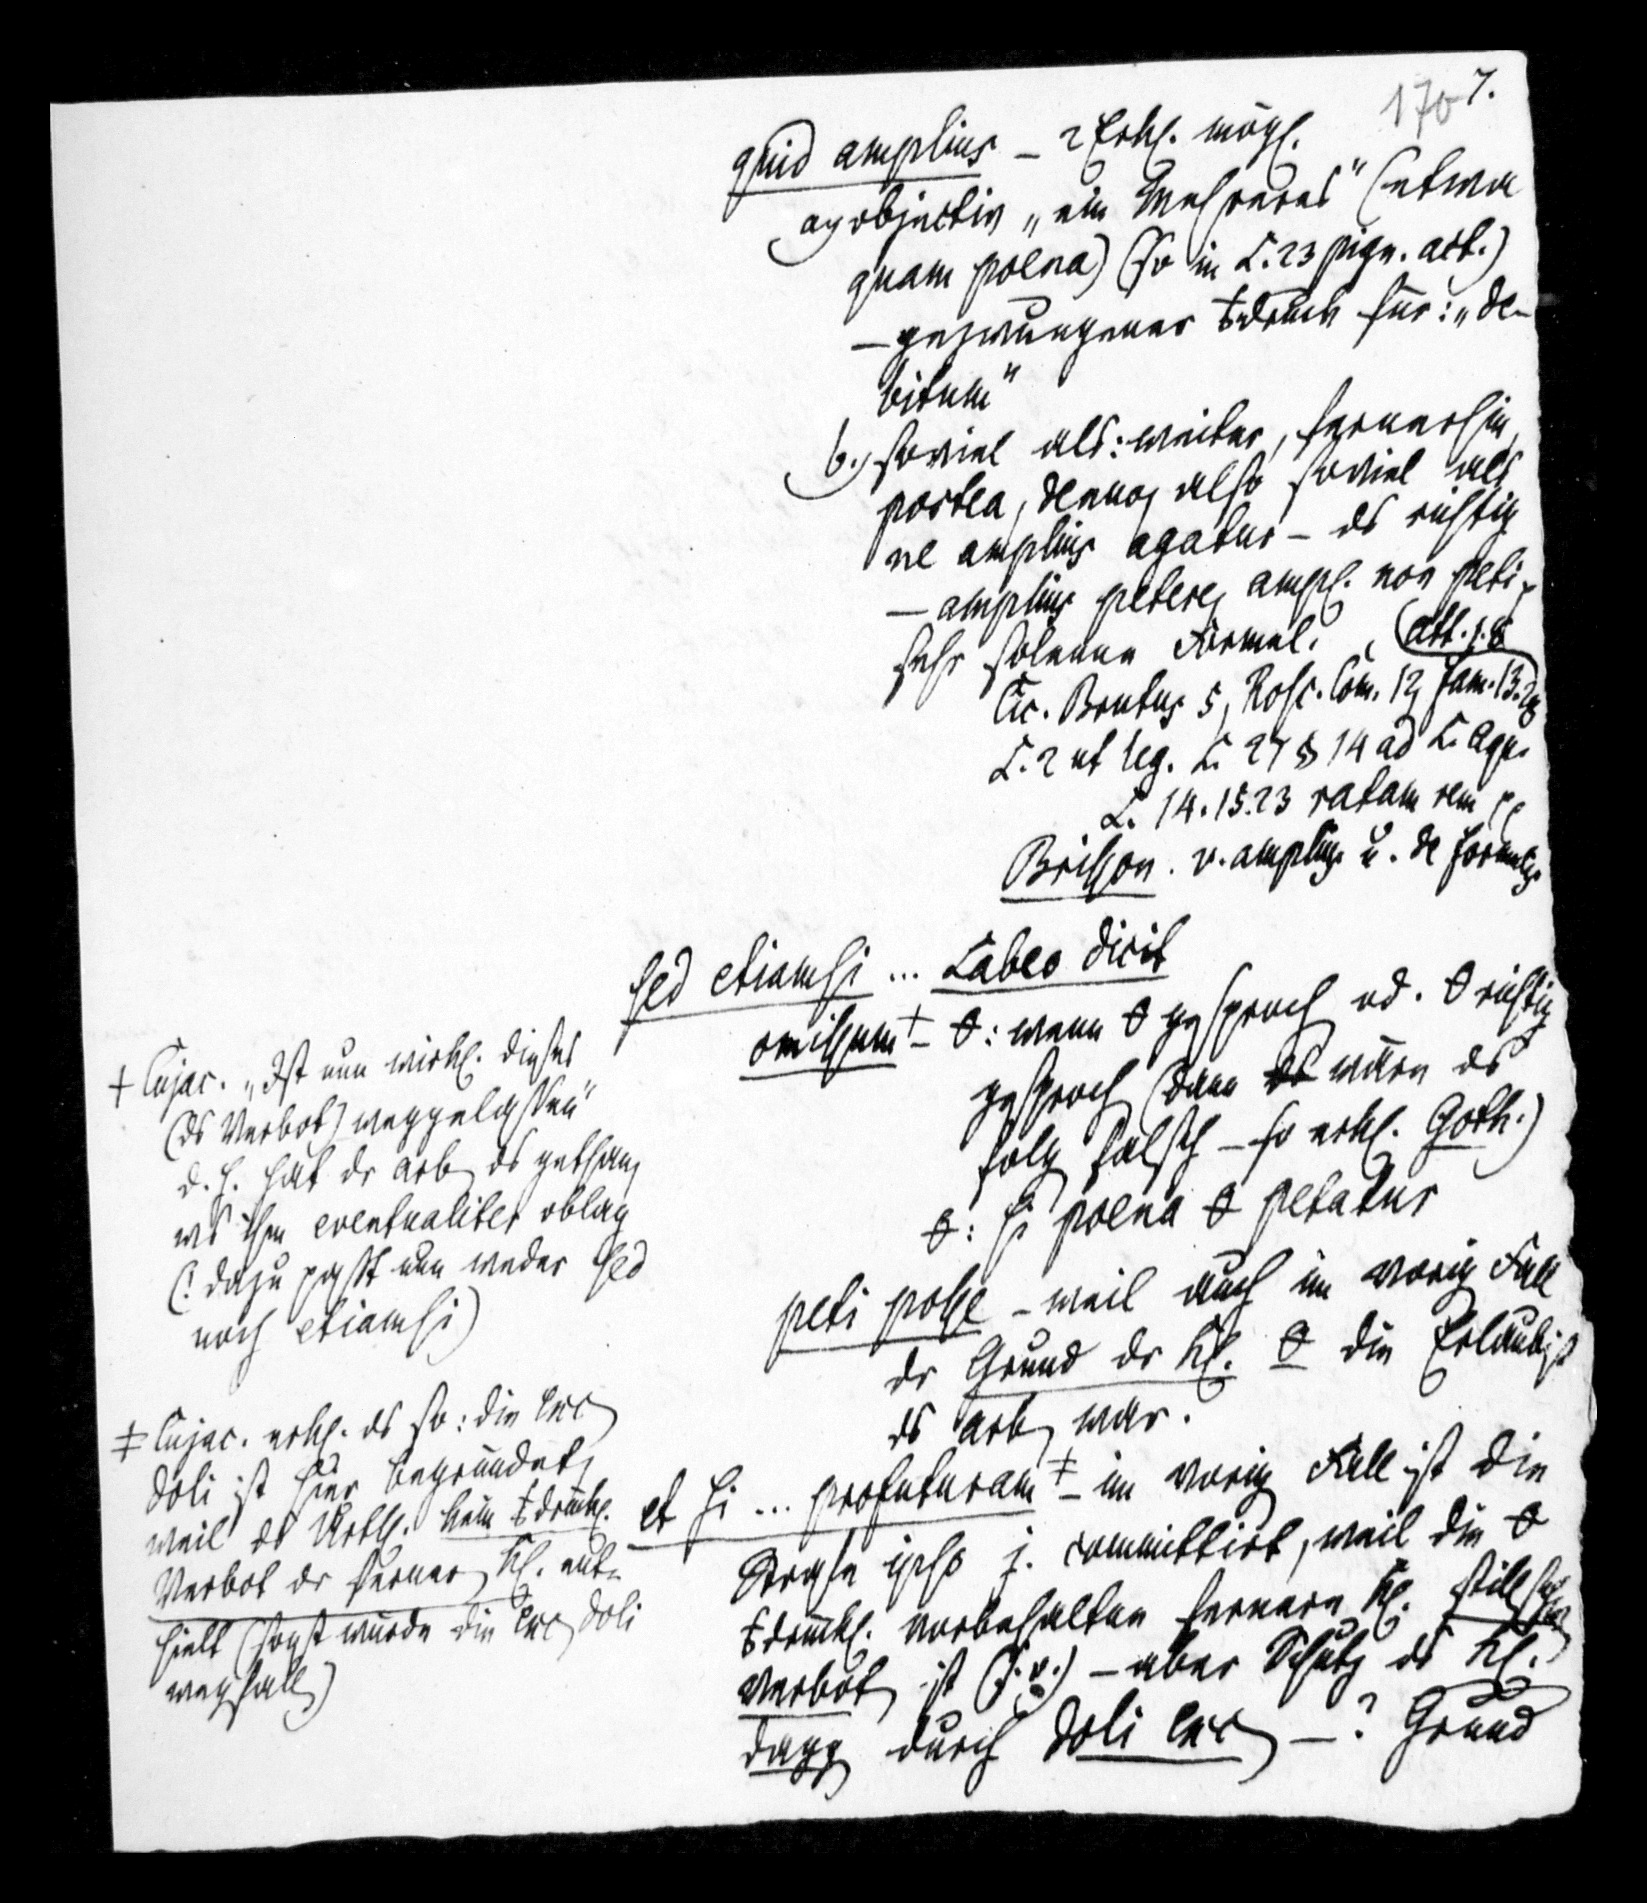 170 7.
quid amplius – 2 Erkl. mögl.
a) objectiv „ein Mehreres“ (etwa
quam poena) (so in L. 23 pign. act.)
– gezwungener Ausdruck für: „de-
bitum“
b.) soviel als: weiter, fernerhin,
postea, denuo, also soviel als
ne amplius agatur – ds richtig
– amplius petere, ampl. non peti,
sehr solenne Formel. Att. 1. 8
Cic. Brutus 5, Rosc. Com. 12, fam. 13. 28
L. 2 ut leg. L. 27 § 14 ad L. Aqu.
L. 14. 15. 23 ratam rem
Brisson. v. amplius u. de formulis.
sed etiamsi ... Labeo dicit
omissum † – : wenn gesproch od. richtig
gesproch (dann wäre ds
folg falsch – so erkl. Goth.)
: si poena petatur
peti posse – weil auch im vorig Fall
dr Grund dr Kl. die Erlaubniß
ds arb. war.
et si ... profuturam ‡ – im vorig Fall ist die
Strafe ipso j. committirt, weil die
ausdrückl. vorbehaltene fernere Kl. stillschw
verbot, ist (j. v.) – aber Schutz ds Kl.
dageg durch doli exc – ? Grund
† Cujac. „Ist nun wirkl. dieses
(ds Verbot) weggelassen“
d. h. hat dr arb. ds gethan,
ws ihm eventualiter oblag
(! dazu paßt nun weder sed
noch etiamsi)
‡ Cujac. erkl. ds so: die exc
doli ist hier begründet,
weil ds Urtl. kein ausdrückl.
Verbot dr ferner Kl. ent-
hielt (sonst würde die exc doli
wegfall)